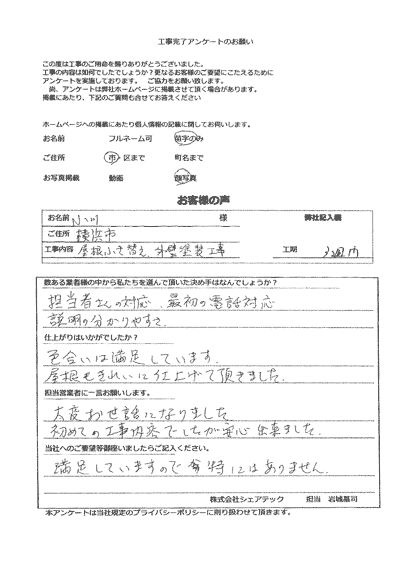 工事完了アンケートのお願い
この度は工事のご用命を賜りありがとうございました。
工事の内容は如何でしたでしょうか?更なるお客様のご要望にこたえるために
アンケートを実施しております。 ご協力をお願い致します。
尚、アンケートは弊社ホームページに掲載させて頂く場合があります。
掲載にあたり、下記のご質問も合せてお答えください
ホームページへの掲載にあたり個人情報の記載に関してお伺いします。
お名前 フルネーム可 苗字のみ
ご住所 市・区まで 町名まで
お写真掲載 動画 顔写真
お客様の声
お名前 様 弊社記入欄
ご住所 横浜市
工事内容 屋根ふき替え、外壁塗装工事 工期 3週間
数ある業者様の中から私たちを選んで頂いた決め手はなんでしょうか?
担当者さんの対応、最初の電話対応
説明の分かりやすさ
仕上がりはいかがでしたか?
色合いは満足しています。
屋根もきれいに仕上げて頂きました。
担当営業者に一言お願いします。
大変お世話になりました
初めての工事内容でしたが安心出来ました。
当社へのご要望等御座いましたらご記入ください。
満足していますので特にはありません。
株式会社シェアテック 担当 岩城基司
本アンケートは当社規定のプライバシーポリシーに則り扱わせて頂きます。